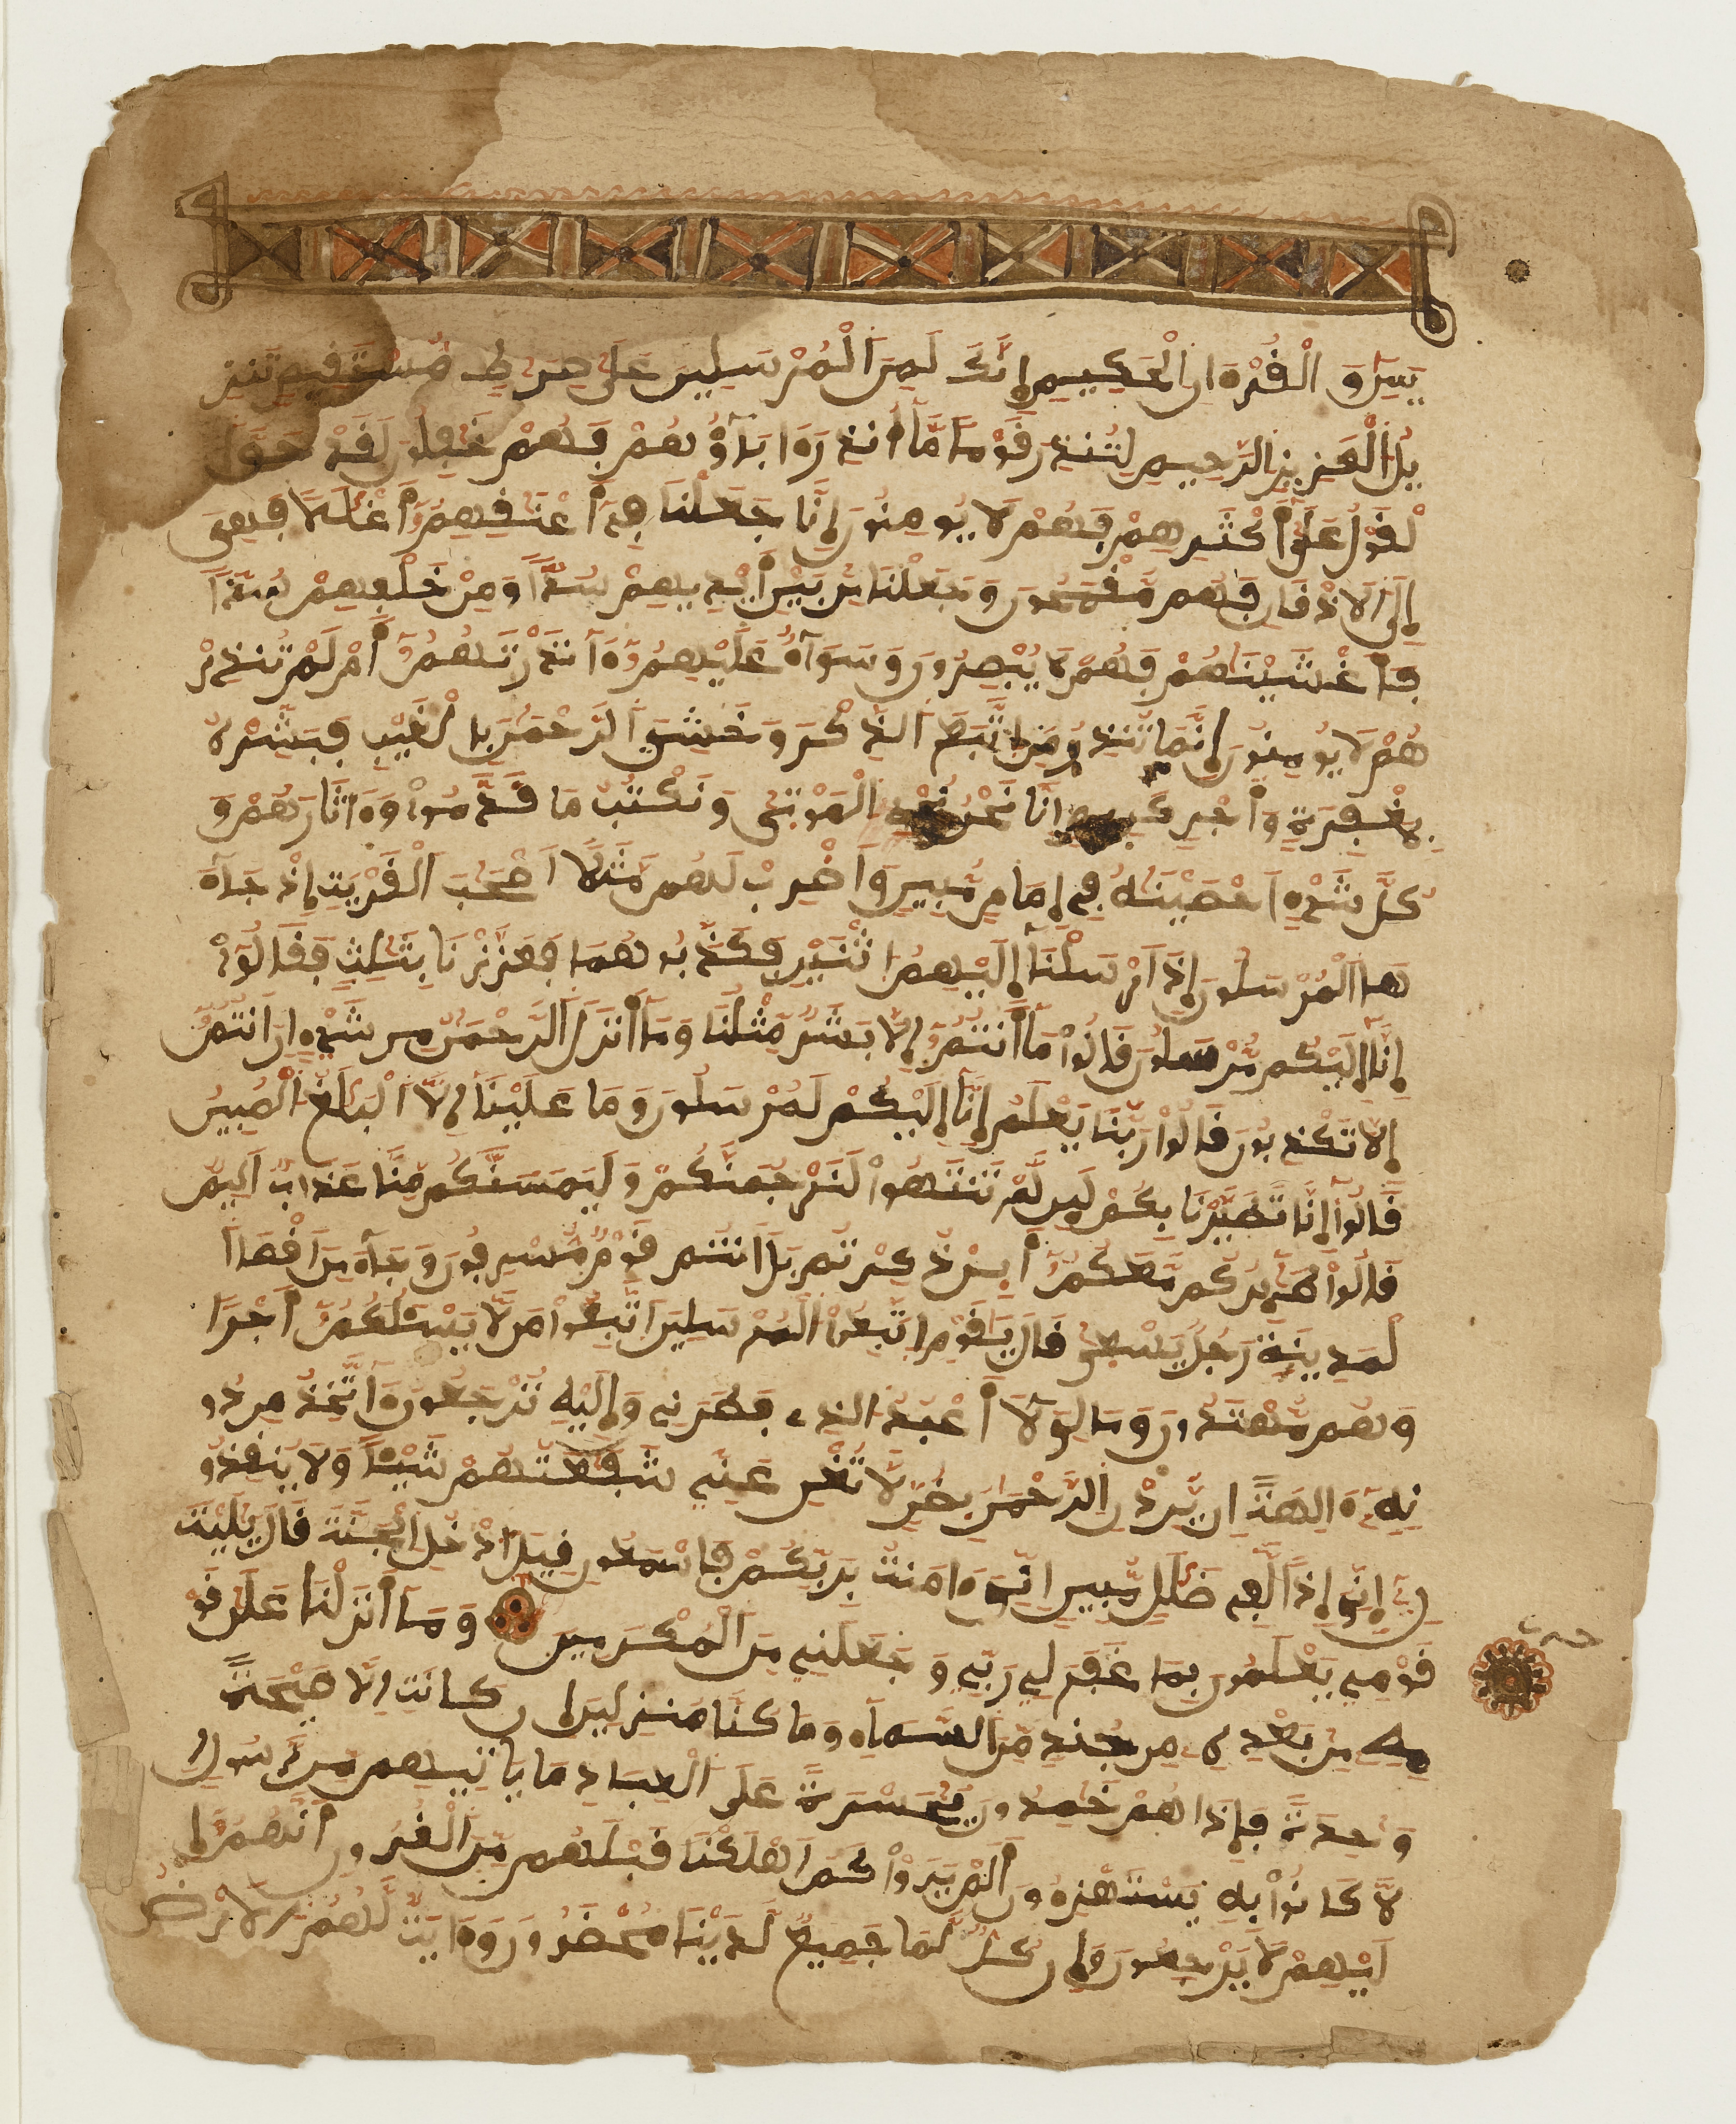 يَسِٓ وَالْقُرْءَانِ الْحَكِيمِ إِنَّكَ لَمِنَ ٱلْمُرْسَلِينَ عَلَىٰ صِرَٰطٍ مُّسْتَقِيمٍ تَنزِ
يلُ ٱلْعَزِيزِ ٱلرَّحِيمِ لِتُنذِرَ قَوْمًا مَّآ أُنذِرَ ءَابَآؤُهُمْ فَهُمْ غَٰفِلُونَ لَقَدْ حَقَّ ا
لْقَوْلُ عَلَىٰٓ أَكْثَرِهِمْ فَهُمْ لَا يُومِنُونَ إِنَّا جَعَلْنَا فِىٓ أَعْنَٰقِهِمُۥٓ أَغْلَٰلًا فَهِىَ
إِلَى ٱلَاذْقَانِ فَهُم مُّقْمَحُونَ وَجَعَلْنَا مِنۢ بَيْنِ أَيْدِيهِمْ سُدًّا وَمِنْ خَلْفِهِمْ سُدًّا
فَأَغْشَيْنَٰهُمْ فَهُمْ لَا يُبْصِرُونَ وَسَوَآءٌ عَلَيْهِمُۥٓ ءَآنذَرْتَهُمُۥٓ أَمْ لَمْ تُنذِرْ
هُمْ لَا يُومِنُونَ إِنَّمَا تُنذِرُ مَنِ ٱتَّبَعَ ٱلذِّكْرَ وَخَشِىَ ٱلرَّحْمَٰنَ بِالْغَيْبِ فَبَشِّرْهُ
بِمَغْفِرَةٍ وَأَجْرٍ كَرِيمٍ إِنَّا نَحْنُ نُحْىِ ٱلْمَوْتَىٰ وَنَكْتُبُ مَا قَدَّمُوا۟ وَءَاثَٰرَهُمْ وَ
كُلَّ شَىْءٍ اَحْصَيْنَٰهُ فِىٓ إِمَامٍ مُّبِينٍ وَاَضْرِبْ لَهُم مَّثَلًا اَصْحَٰبَ ٱلْقَرْيَةِ إِذْ جَآءَ
هَا ٱلْمُرْسَلُونَ إِذَ اَرْسَلْنَآ إِلَيْهِمُ ٱثْنَيْنِ فَكَذَّبُوهُمَا فَعَزَّزْنَا بِثَالِثٍ فَقَالُوٓا۟
إِنَّآ إِلَيْكُم مُّرْسَلُونَ قَالُوا۟ مَآ أَنتُمُۥٓ إِلَّا بَشَرٌ مِّثْلُنَا وَمَآ أَنزَلَ ٱلرَّحْمَٰنُ مِن شَىْءٍ اِنَ اَنتُمُۥٓ
إِلَّا تَكْذِبُونَ قَالُوا۟ رَبُّنَا يَعْلَمُ إِنَّآ إِلَيْكُمْ لَمُرْسَلُونَ وَمَا عَلَيْنَآ إِلَّا ٱلْبَلَٰغُ ٱلْمُبِينُ
قَالُوٓا۟ إِنَّا تَطَيَّرْنَا بِكُمْ لَئِن لَّمْ تَنتَهُوا۟ لَنَرْجُمَنَّكُمْ وَلَيَمَسَّنَّكُم مِّنَّا عَذَابٌ اَلِيمٌ
قَالُوا۟ طَٰٓئِرُكُم مَّعَكُمُۥٓ أَئِن ذُكِّرْتُم بَلَ اَنتُمْ قَوْمٌ مُّسْرِفُونَ وَجَآءَ مِنَ اَقْصَا ٱ
لْمَدِينَةِ رَجُلٌ يَسْعَىٰ قَالَ يَٰقَوْمِ ٱتَّبِعُوا۟ ٱلْمُرْسَلِينَ ٱتَّبِعُوا۟ مَن لَّا يَسْـَٔلُكُمُۥٓ أَجْرًا
وَهُم مُّهْتَدُونَ وَمَا لِىَ لَآ أَعْبُدُ ٱلذِى فَطَرَنِى وَإِلَيْهِ تُرْجَعُونَ ءَآتَّخِذُ مِن دُو
نِهِۦٓ ءَالِهَةً اِنْ يُّرِدْنِ ٱلرَّحْمَٰنُ بِضُرٍّ لَّا تُغْنِ عَنِّى شَفَٰعَتُهُمْ شَيْـًٔا وَلَا يُنقِذُو
نِۦٓ إِنِّىَ إِذًا لَّفِى ضَلَٰلٍ مُّبِينٍ اِنِّىَ ءَامَنتُ بِرَبِّكُمْ فَاسْمَعُونِ قِيلَ ٱدْخُلِ ٱلْجَنَّةَ قَالَ يَٰلَيْتَ
قَوْمِى يَعْلَمُونَ بِمَا غَفَرَ لِى رَبِّى وَجَعَلَنِى مِنَ ٱلْمُكْرَمِينَ وَمَآ أَنزَلْنَا عَلَىٰ قَوْ
حزب
مِهِۦ مِنۢ بَعْدِهِۦ مِن جُندٍ مِّنَ ٱلسَّمَآءِ وَمَا كُنَّا مُنزِلِينَ إِن كَانَتِ اِلَّا صَيْحَةً
وَٰحِدَةً فَإِذَا هُمْ خَٰمِدُونَ يَٰحَسْرَةً عَلَى ٱلْعِبَادِ مَا يَاتِيهِم مِّن رَّسُولٍ اِ
لَّا كَانُوا۟ بِهِۦ يَسْتَهْزِءُونَ أَلَمْ يَرَوْا۟ كَمَ اَهْلَكْنَا قَبْلَهُم مِّنَ ٱلْقُرُونِ أَنَّهُمُۥٓ إِ
لَيْهِمْ لَا يَرْجِعُونَ وَإِن كُلٌّ لَّمَا جَمِيعٌ لَّدَيْنَا مُحْضَرُونَ وَءَايَةٌ لَّهُمُ ٱلَارْضُ